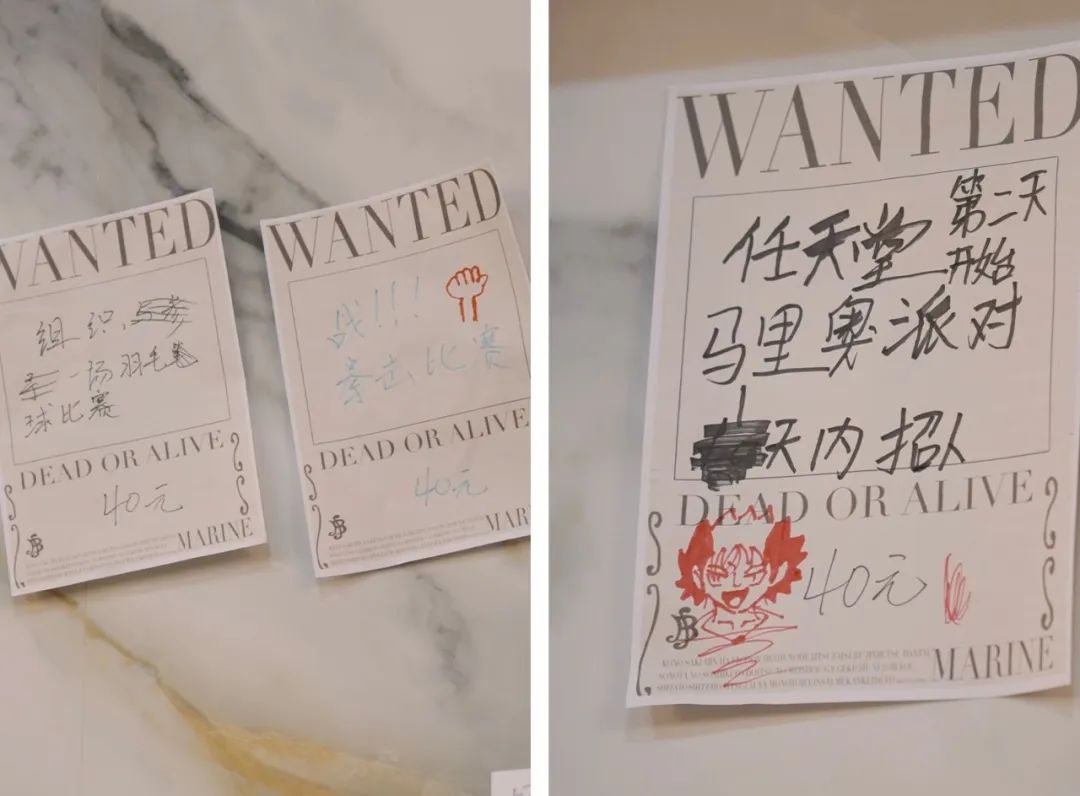 WANTED
组织
一场羽毛
球比赛
DEAD OR ALIVE
40元
MARINE
WANTED
战!!!
拳击比赛
DEAD OR ALIVE
40元
MAR
WANTED
第二天
开始
任天堂
马里奥派对
天内招人
DEAD OR ALIVE
40元
MARINE